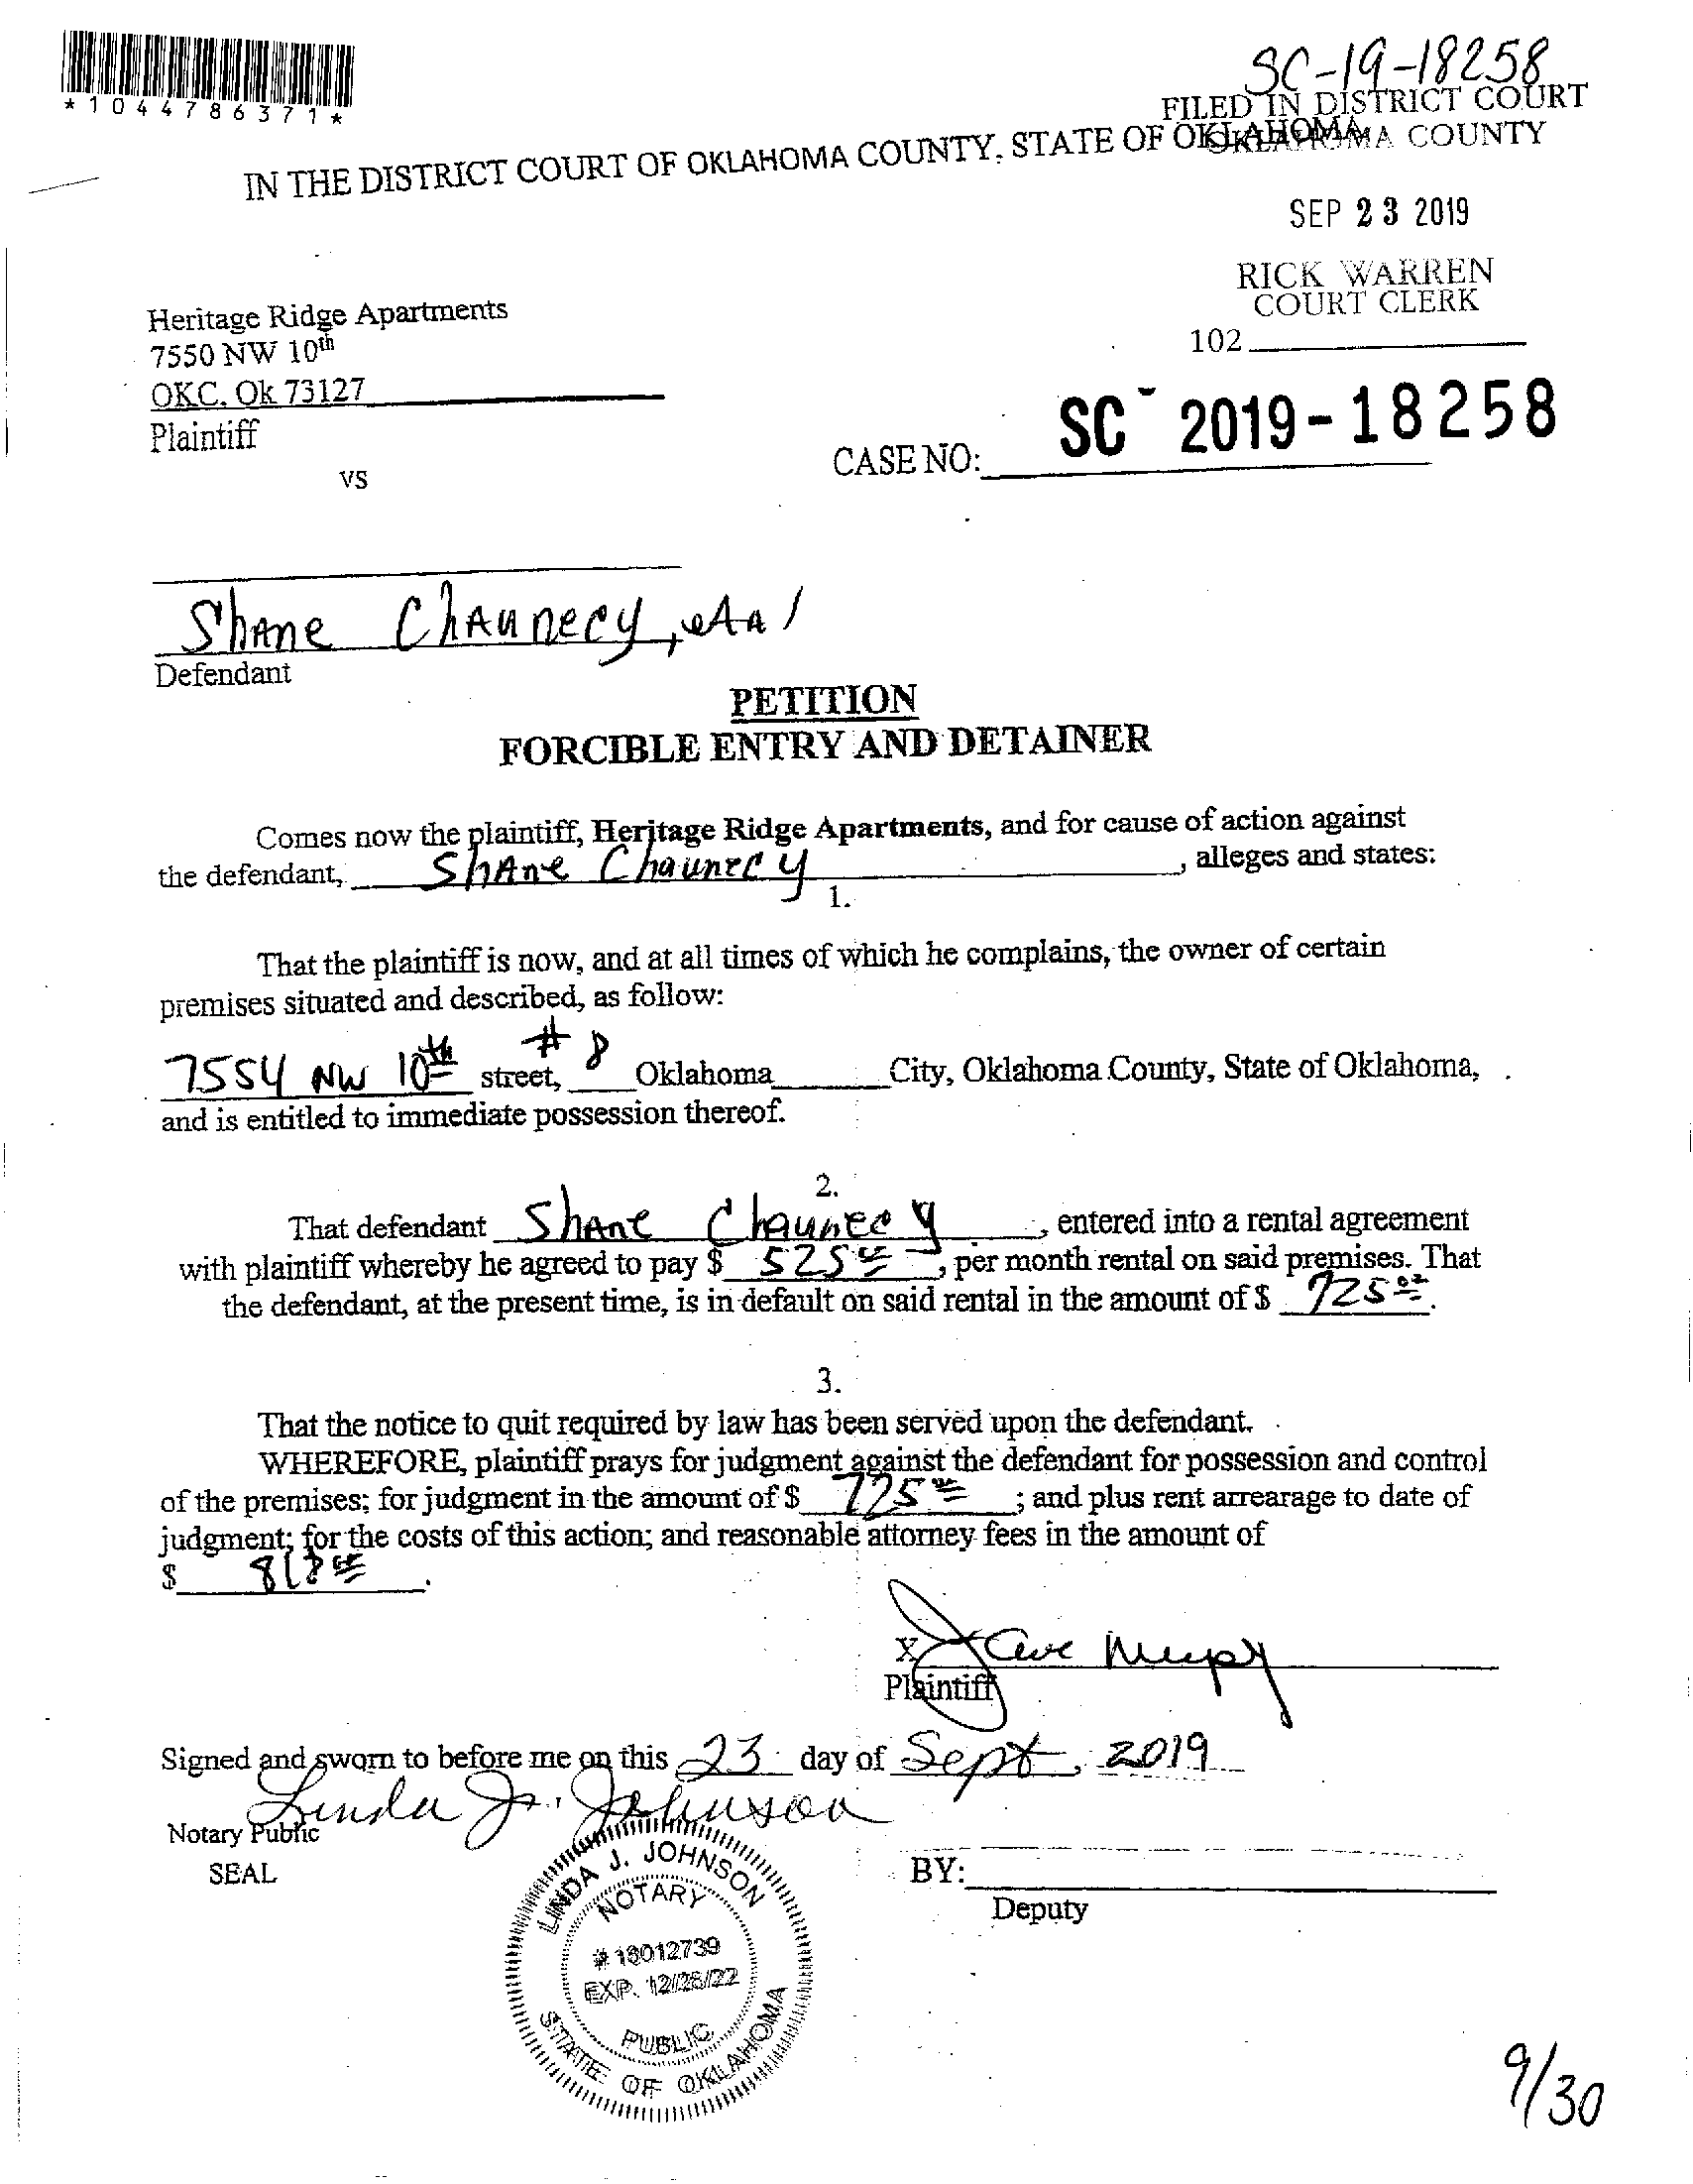 SC-19-18258
*1044786371*
FILED IN DISTRICT COURT
OKLAHOMA COUNTY
IN THE DISTRICT COURT OF OKLAHOMA COUNTY, STATE OF OKLAHOMA
SEP 23 2019
RICK WARREN
COURT CLERK
102
Heritage Ridge Apartments
7550 NW 10th
OKC, Ok 73127
Plaintiff
vs
CASE NO: SC - 2019-18258
Shane Chaunecy, etal
Defendant
PETITION
FORCIBLE ENTRY AND DETAINER
Comes now the plaintiff, Heritage Ridge Apartments, and for cause of action against
the defendant, Shane Chaunecy, alleges and states:
1.
That the plaintiff is now, and at all times of which he complains, the owner of certain
premises situated and described, as follow:
7554 NW 10th street, #8 Oklahoma City, Oklahoma County, State of Oklahoma,
and is entitled to immediate possession thereof.
2.
That defendant Shane Chaunecy, entered into a rental agreement
with plaintiff whereby he agreed to pay $ 525 00, per month rental on said premises. That
the defendant, at the present time, is in default on said rental in the amount of $ 725 00.
3.
That the notice to quit required by law has been served upon the defendant.
WHEREFORE, plaintiff prays for judgment against the defendant for possession and control
of the premises; for judgment in the amount of $ 725 00; and plus rent arrearage to date of
judgment; for the costs of this action; and reasonable attorney fees in the amount of
$ .
X
Plaintiff
Signed and sworn to before me on this 23 day of Sept, 2019
Linda J. Johnson
Notary Public
SEAL
BY:
Deputy
LINDA J. JOHNSON
NOTARY
# 18012739
EXP. 12/28/22
PUBLIC
STATE OF OKLAHOMA
9/30